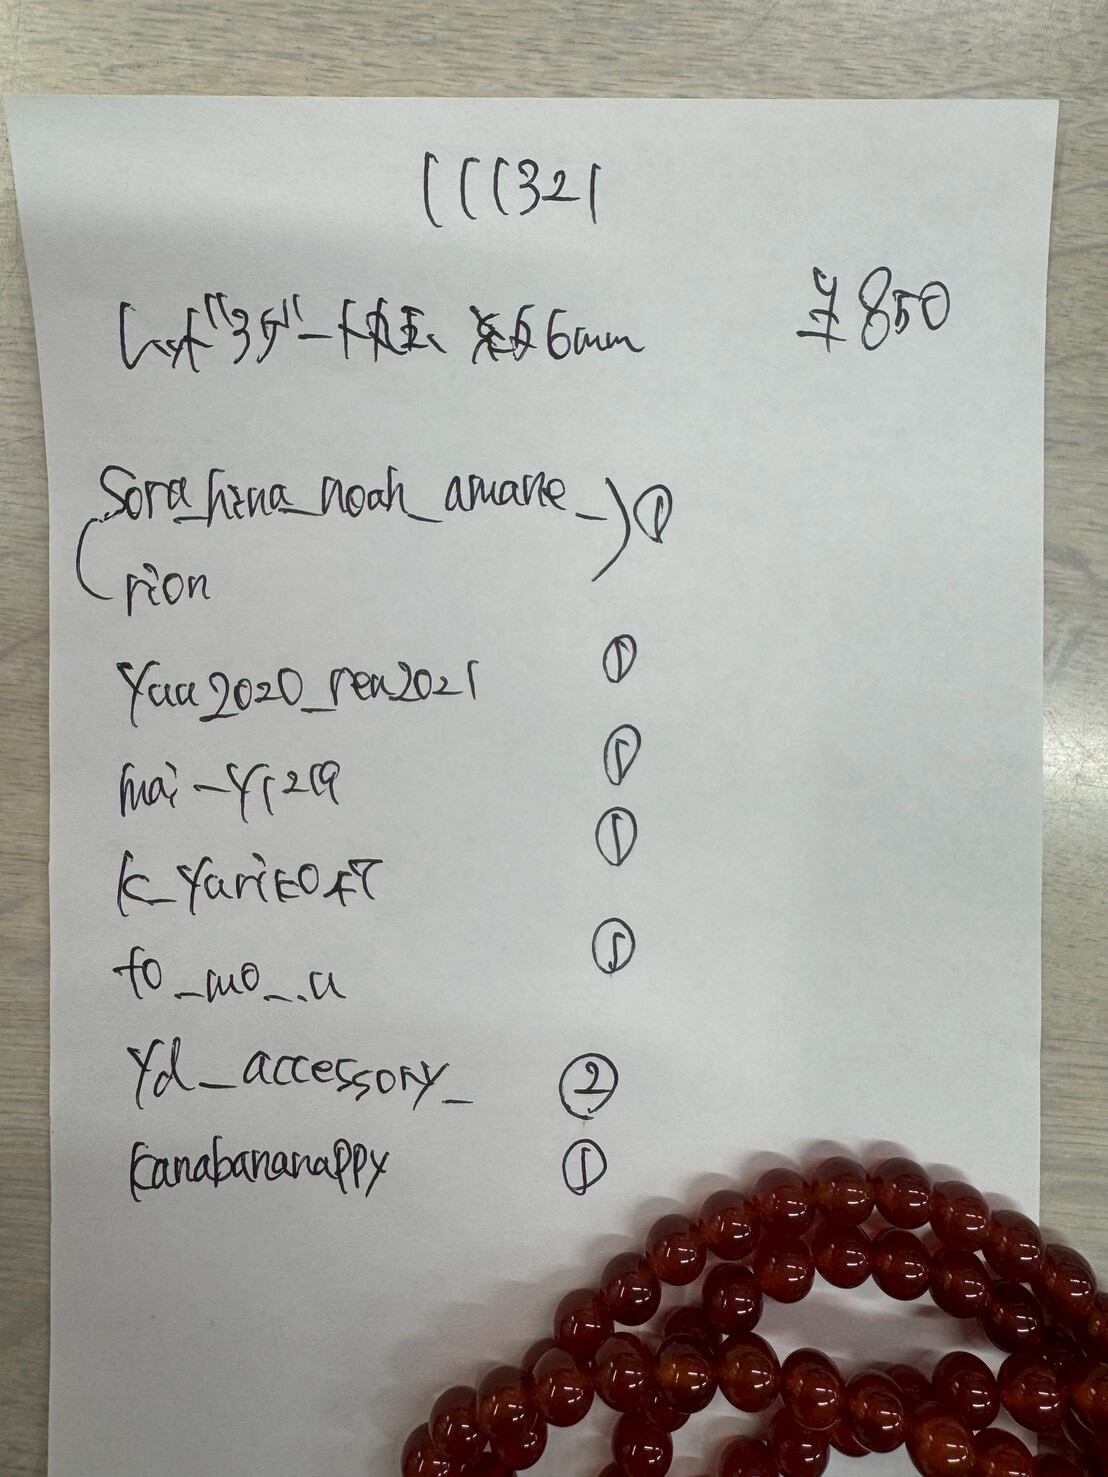 111321
6mm ¥850
Sora_hina_noah_amane_ ①
rion
Yaa2020_rea2021 ①
mai-y1219 ①
k_yarik047 ①
to_mo_.u ①
Yd_accessory_ ②
kanabananappy ①